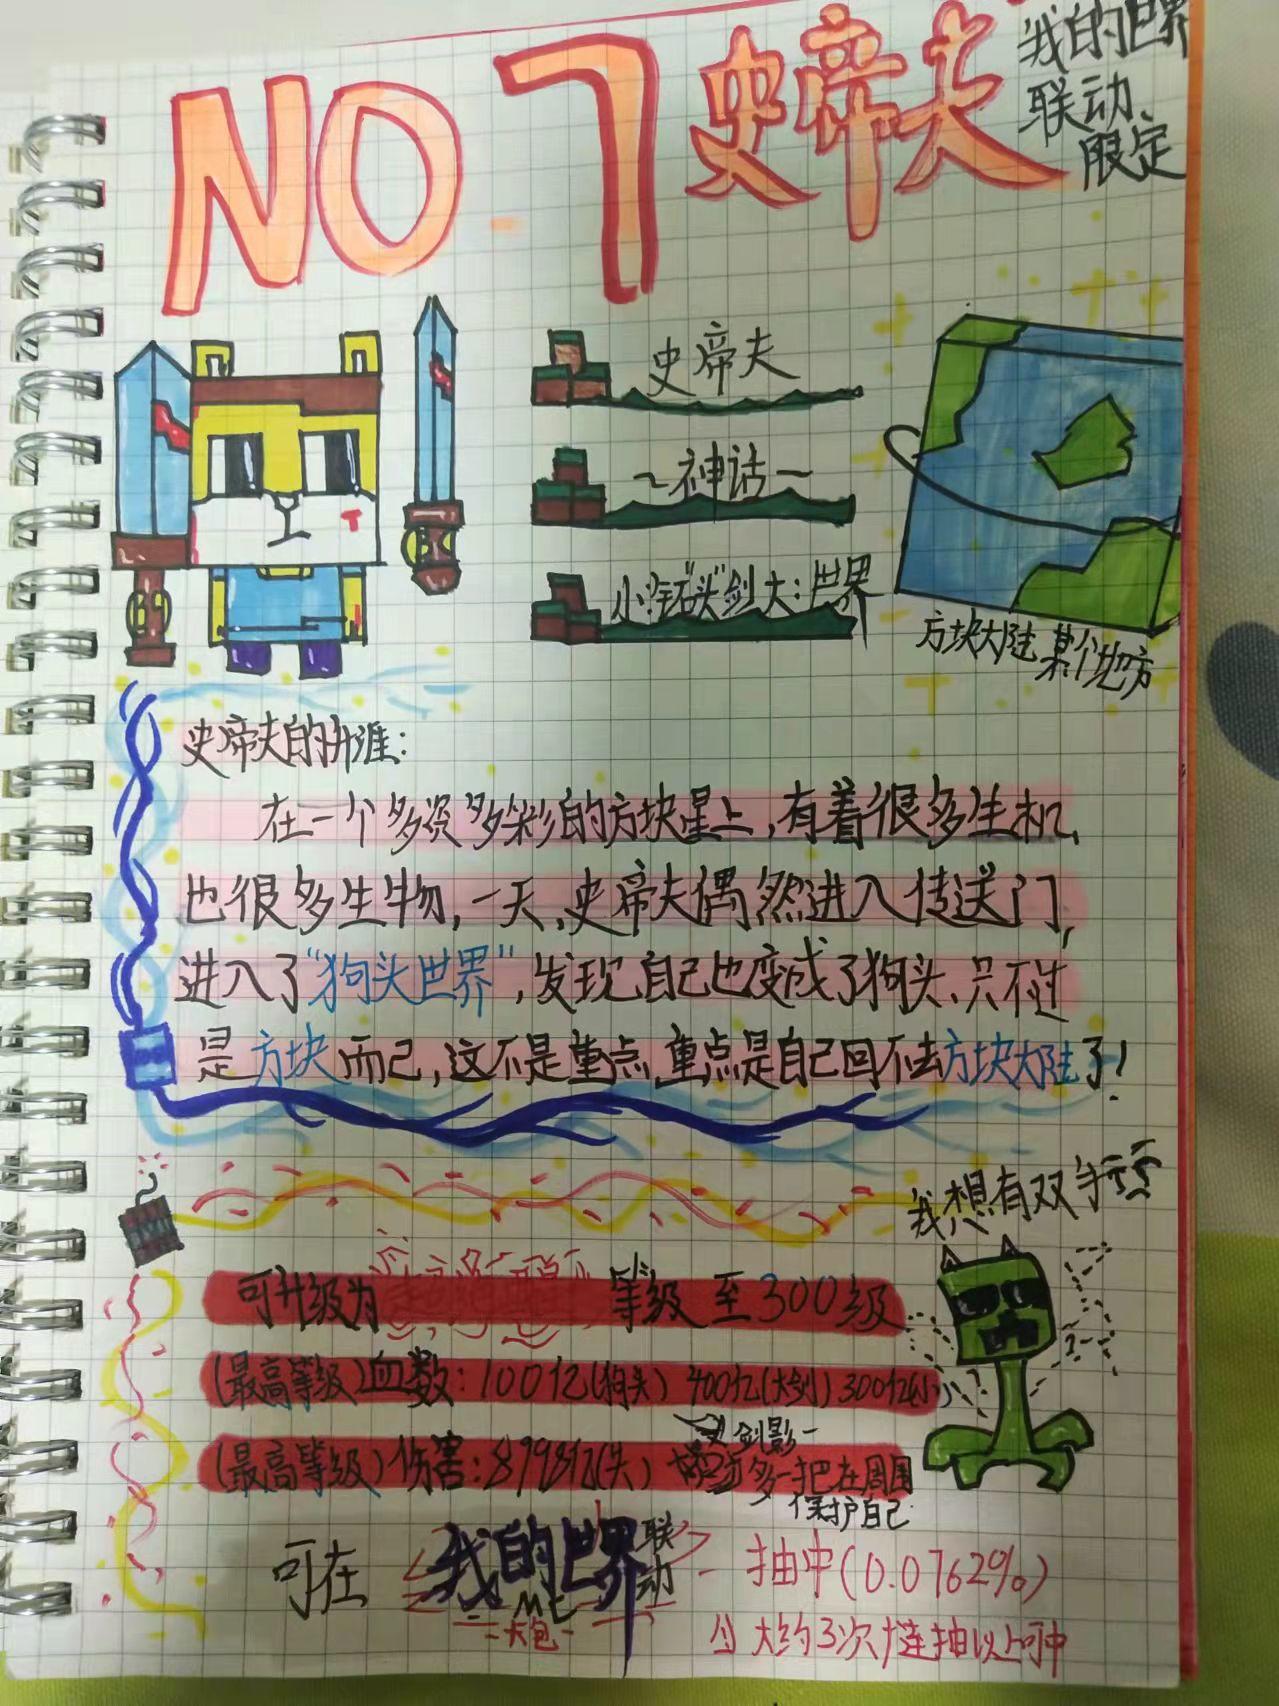 NO.7 史帝夫
我的世界
联动、
限定
史帝夫
~神话~
方块大陆 某个地方
史帝夫的升涯:
在一个多资多彩的方块星上,有着很多生机、
也很多生物,一天,史帝夫偶然进入传送门,
进入了"狗头世界",发现自己也变成了狗头、只不过
是方块而己,这不是重点,重点是自己回不去方块大陆了!
我想有双手
可升级为 等级 至300级
(最高等级)血数:100亿(狗头) 400亿(大剑) 300亿
(最高等级)伤害:
剑影
多一把在周围
保护自己
可在 我的世界 联动 - 抽中(0.0762%)
MC
-大包-
大约3次十连抽以上可中